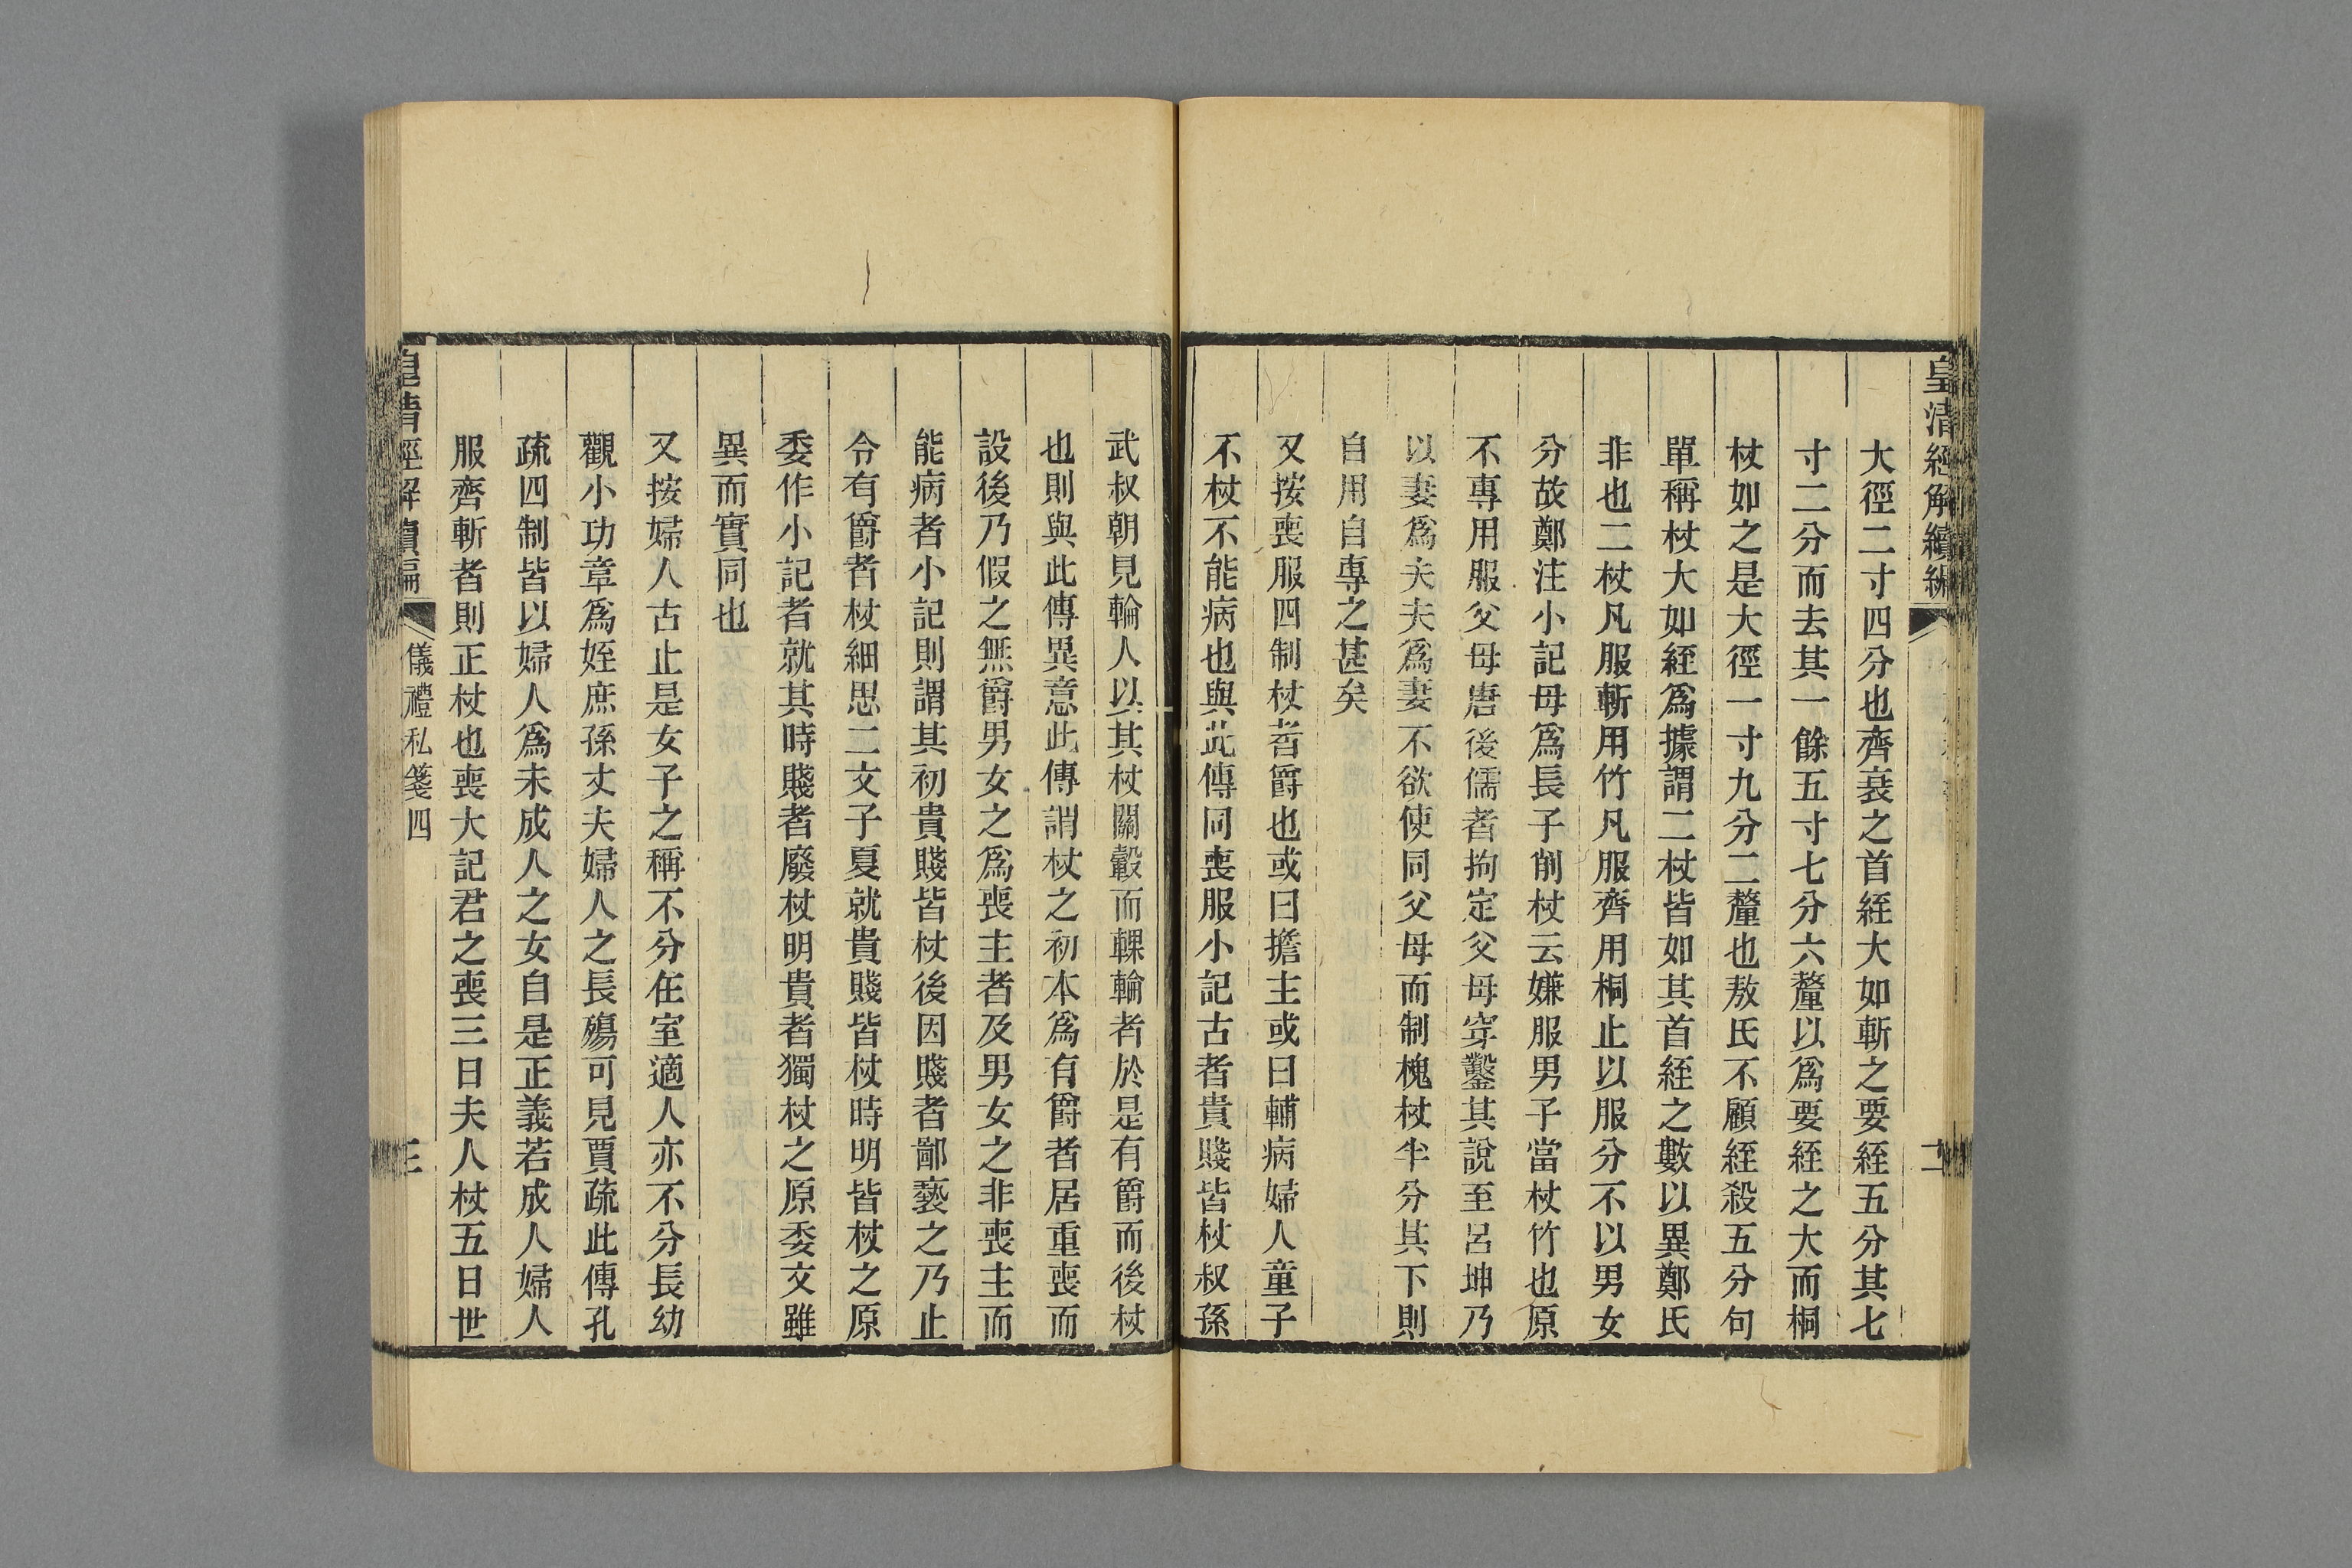 皇清經解續編
二
大徑二寸四分也齊衰之首絰大如斬之要絰五分其七
寸二分而去其一餘五寸七分六釐以爲要絰之大而桐
杖如之是大徑一寸九分二釐也敖氏不顧絰殺五分句
單稱杖大如絰爲據謂二杖皆如其首絰之數以異鄭氏
非也二杖凡服斬用竹凡服齊用桐止以服分不以男女
分故鄭注小記母爲長子削杖云嫌服男子當杖竹也原
不專用服父母唐後儒者拘定父母穿鑿其說至呂坤乃
以妻爲夫夫爲妻不欲使同父母而制槐杖半分其下則
自用自專之甚矣
又按喪服四制杖者爵也或曰擔主或曰輔病婦人童子
不杖不能病也與此傳同喪服小記古者貴賤皆杖叔孫
武叔朝見輪人以其杖關轂而輠輪者於是有爵而後杖
也則與此傳異意此傳謂杖之初本爲有爵者居重喪而
設後乃假之無爵男女之爲喪主者及男女之非喪主而
能病者小記則謂其初貴賤皆杖後因賤者鄙褻之乃止
令有爵者杖細思二文子夏就貴賤皆杖時明皆杖之原
委作小記者就其時賤者廢杖明貴者獨杖之原委文雖
異而實同也
又按婦人古止是女子之稱不分在室適人亦不分長幼
觀小功章爲姪庶孫丈夫婦人之長殤可見賈疏此傳孔
疏四制皆以婦人爲未成人之女自是正義若成人婦人
服齊斬者則正杖也喪大記君之喪三日夫人杖五日世
皇清經解續編
儀禮私箋四
三